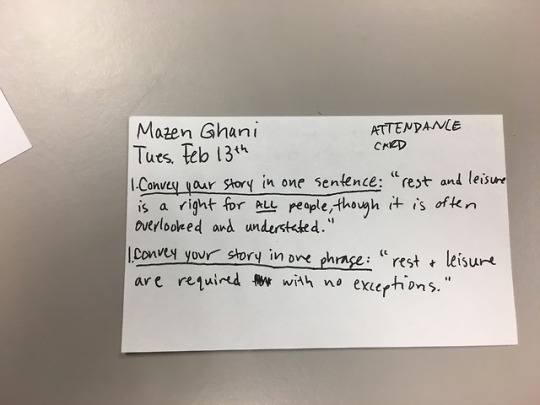 Mazen Ghani
ATTENDANCE
CARD
Tues. Feb 13th
1. Convey your story in one sentence: "rest and leisure
is a right for ALL people, though it is often
overlooked and understated."
1. Convey your story in one phrase: "rest + leisure
are required with no exceptions."